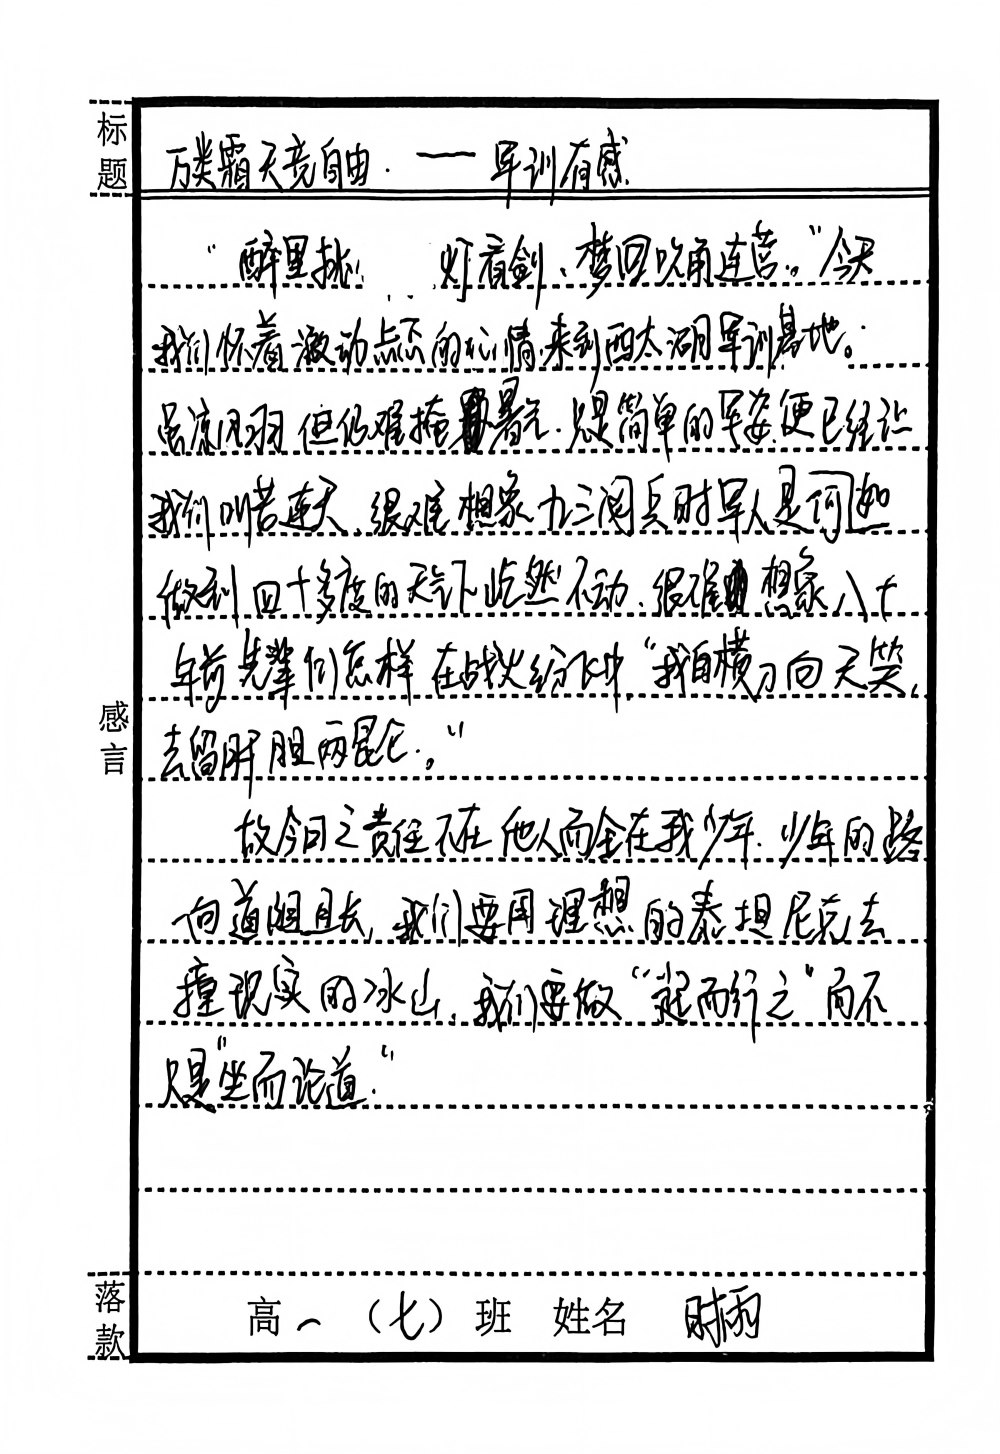 标题
万类霜天竞自由.——军训有感
“醉里挑 灯看剑、梦回吹角连营。”今天
我们怀着激动忐忑的心情.来到西太湖军训基地。
虽凉风习习 但仍难掩暑气.只是简单的军姿便已经让
我们叫苦连天、很难想象九三阅兵时军人是何
做到四十多度的天气下屹然不动、很难想象八十
年前先辈们怎样在战火纷飞中“我自横刀向天笑,
去留肝胆两昆仑。”
感言
故今日之责任不在他人而全在我少年.少年的路
向道阻且长,我们要用理想的泰坦尼克去
撞现实的冰山,我们要做“起而行之”而不
只是“坐而论道.”
落款
高一(七)班 姓名 时雨